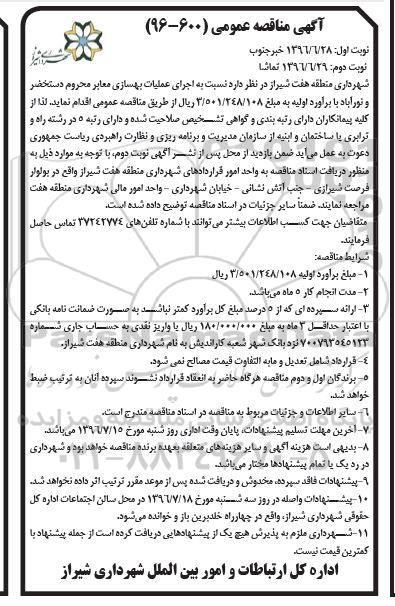 آگهی مناقصه عمومی (۶۰۰-۹۶)
نوبت اول: ۱۳۹۶/۶/۲۸ خبرجنوب
نوبت دوم: ۱۳۹۶/۶/۲۹ تماشا
شهرداری شیراز
شهرداری منطقه هفت شیراز در نظر دارد نسبت به اجرای عملیات بهسازی معابر محروم دستخضر
و نورآباد با برآورد اولیه به مبلغ ۳/۵۰۱/۲۴۸/۱۰۸ ریال از طریق مناقصه عمومی اقدام نماید. لذا از
کلیه پیمانکاران دارای رتبه بندی و گواهی تشخیص صلاحیت شده و دارای رتبه ۵ در رشته راه و
ترابری یا ساختمان و ابنیه از سازمان مدیریت و برنامه ریزی و نظارت راهبردی ریاست جمهوری
دعوت به عمل می‌آید ضمن بازدید از محل پس از نشر آگهی نوبت دوم، با توجه به موارد ذیل به
منظور دریافت اسناد مناقصه به واحد امور قراردادهای شهرداری منطقه هفت شیراز واقع در بولوار
فرصت شیرازی - جنب آتش نشانی - خیابان شهرداری - واحد امور مالی شهرداری منطقه هفت
مراجعه نمایند. ضمناً سایر جزئیات در اسناد مناقصه توضیح داده شده است.
متقاضیان جهت کسب اطلاعات بیشتر می‌توانند با شماره تلفن‌های ۳۷۲۴۲۷۷۴ تماس حاصل
فرمایند.
شرایط مناقصه:
۱- مبلغ برآورد اولیه ۳/۵۰۱/۲۴۸/۱۰۸ ریال
۲- مدت انجام کار ۵ ماه می‌باشد.
۳- ارائه سپرده ای که از ۵ درصد مبلغ کل برآورد کمتر نباشد به صورت ضمانت نامه بانکی
با اعتبار حداقل ۳ ماه به مبلغ ۱۸۰/۰۰۰/۰۰۰ ریال یا واریز نقدی به حساب جاری شماره
۷۰۰۷۹۳۵۴۵۱۲۳ نزد بانک شهر شعبه کاراندیش به نام شهرداری منطقه هفت شیراز.
۴- قرارداد شامل تعدیل و مابه التفاوت قیمت مصالح نمی شود.
۵- برندگان اول و دوم مناقصه هرگاه حاضر به انعقاد قرارداد نشوند سپرده آنان به ترتیب ضبط
خواهد شد.
۶- سایر اطلاعات و جزئیات مربوط به مناقصه در اسناد مناقصه مندرج است.
۷- آخرین مهلت تسلیم پیشنهادات، پایان وقت اداری روز شنبه مورخ ۱۳۹۶/۷/۱۵ می‌باشد.
۸- بدیهی است هزینه آگهی و سایر هزینه‌های متعلقه بعهده برنده مناقصه خواهد بود و شهرداری
در رد یک یا تمام پیشنهادها مختار می‌باشد.
۹- پیشنهادات فاقد سپرده، مخدوش و دریافت شده پس از موعد مقرر ترتیب اثر داده نخواهد شد.
۱۰- پیشنهادات واصله در روز سه شنبه مورخ ۱۳۹۶/۷/۱۸ در محل سالن اجتماعات اداره کل
حقوقی شهرداری شیراز، واقع در چهارراه خلدبرین باز و خوانده می‌شود.
۱۱- شهرداری ملزم به پذیرش هیچ یک از پیشنهادهایی دریافت کرده است از جمله پیشنهاد با
کمترین قیمت نیست.
اداره کل ارتباطات و امور بین الملل شهرداری شیراز